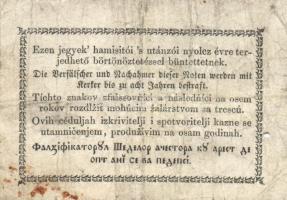 Ezen jegyek' hamisitói 's utánzói nyolcz évre ter-
jedhető börtönöztetéssel büntettetnek.
Die Verfälscher und Nachahmer dieser Noten werden mit
Kerker bis zu acht Jahren bestraft.
Tíchto znakov sfalšovělci a následníci na osem
rokov rozdlžiť mohúcím žalárstvom sa trescú.
Ovih cédulјah izkrivitelji i spotvoritelji kazne se
utamničenjem, produživim na osam godinah.
Фалсіфікаторꙋл Шеделор ачестора кꙋ арест де
опт ані се ва педепсі.